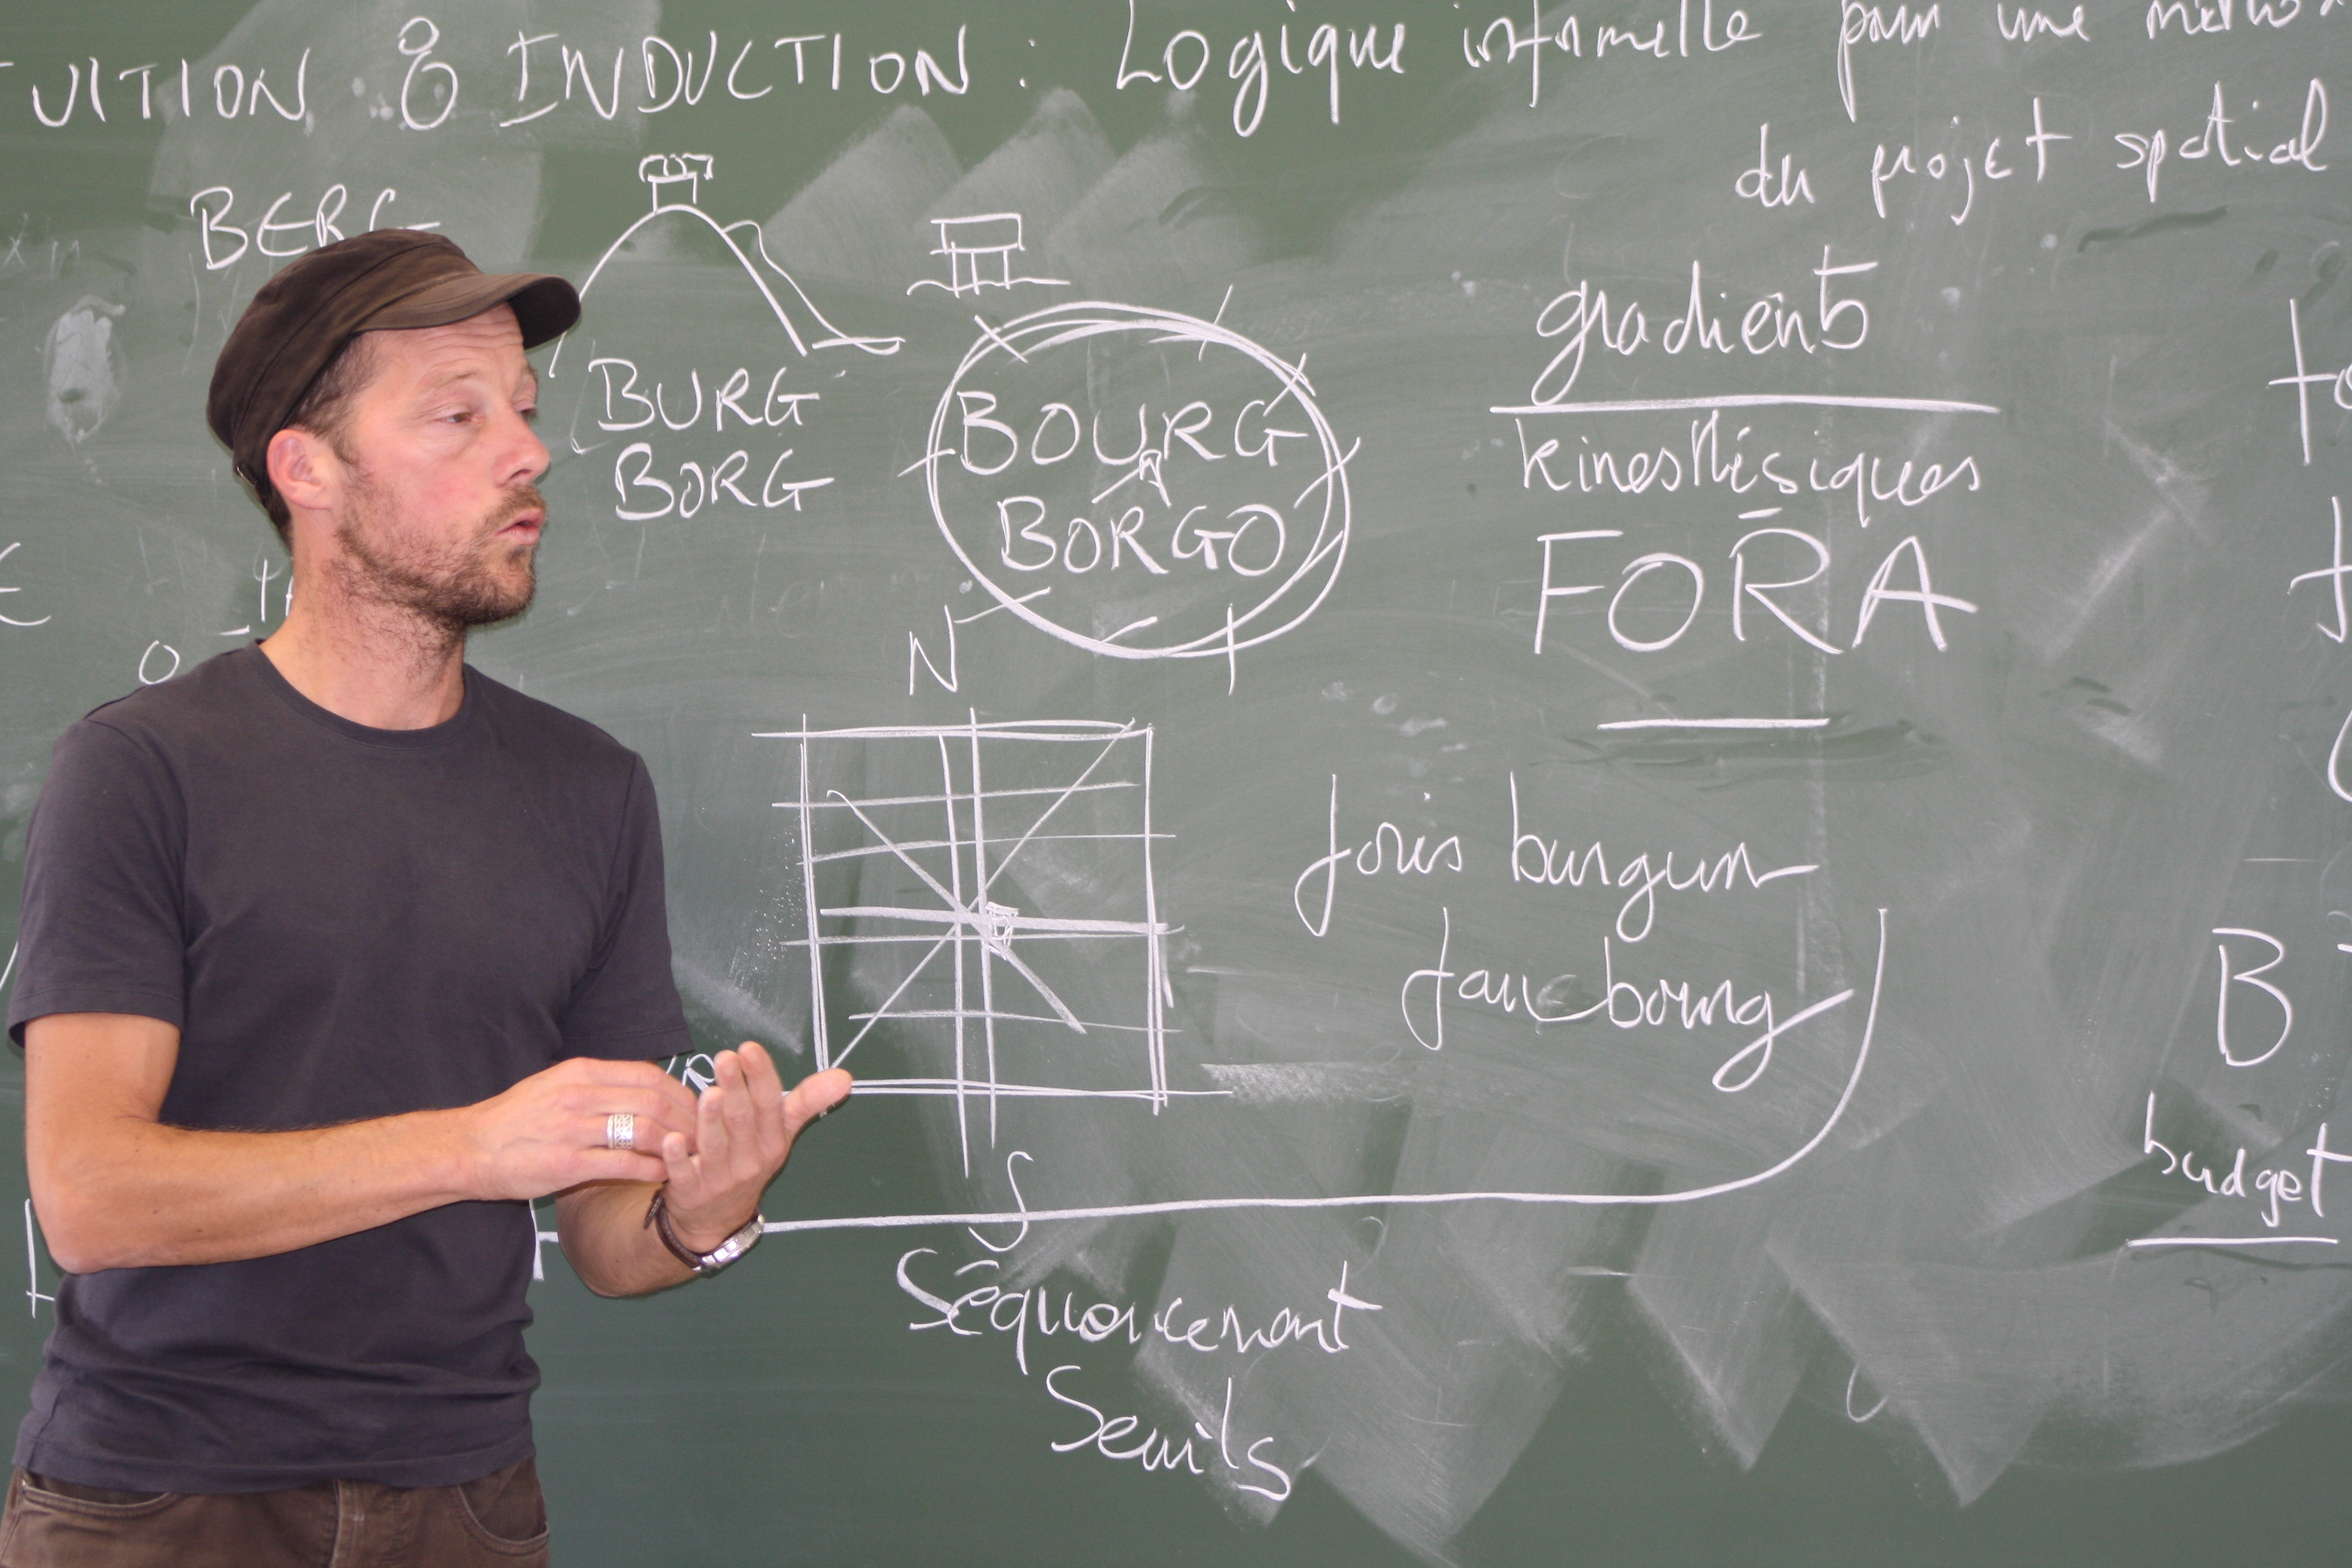 TUITION & INDUCTION : Logique informelle pour une métho
du projet spatial
BERG
BURG
BORG
BOURG
BORGO
gradients
kinesthésiques
FORA
N
foris burgum
faubourg
S
B
budget
Séquencement
Seuils